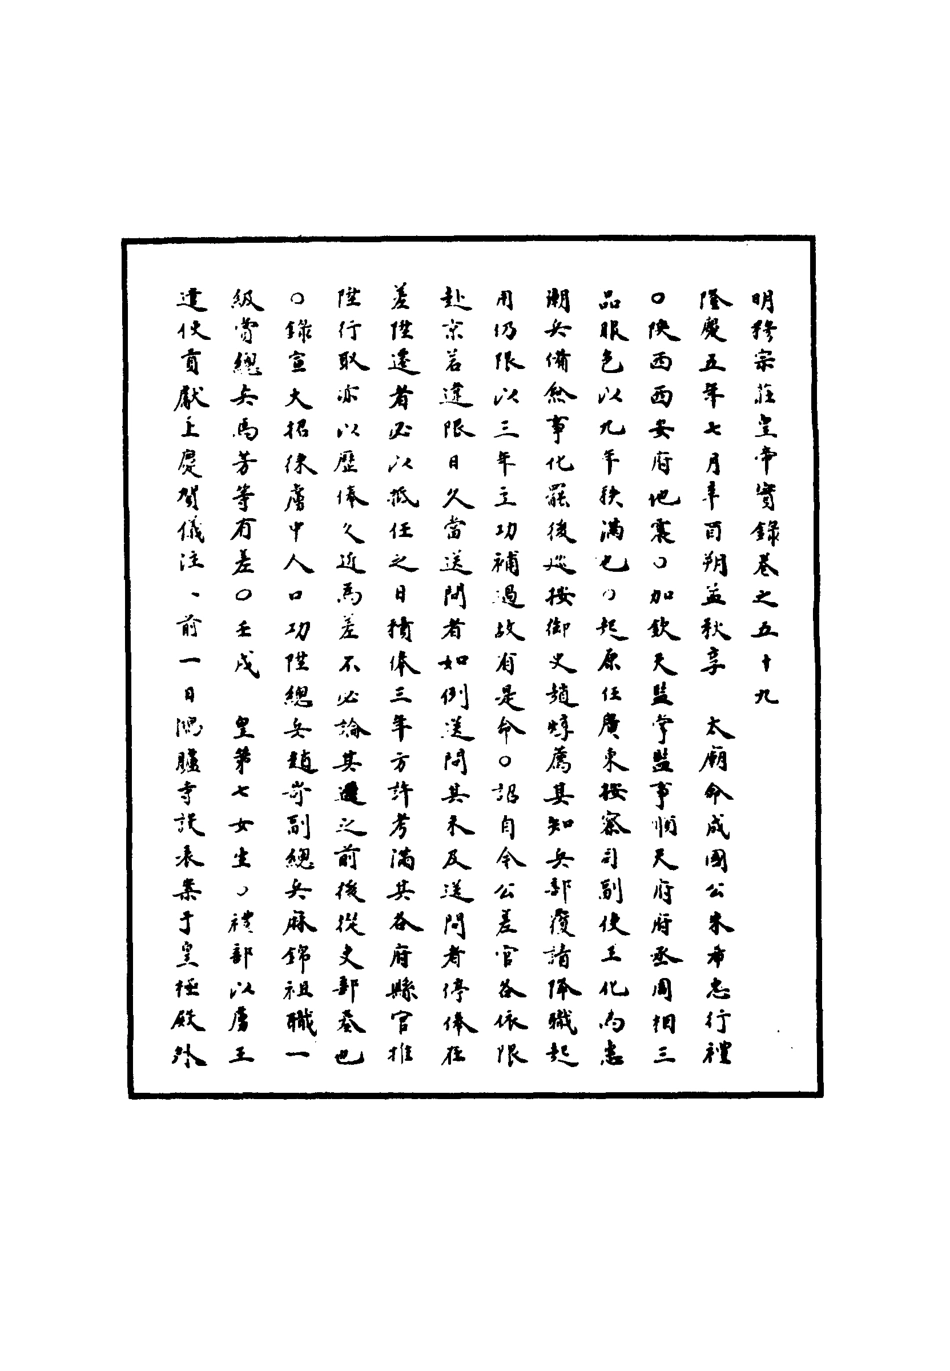 明穆宗莊皇帝實錄卷之五十九
隆慶五年七月辛酉朔孟秋享　太廟命成國公朱希忠行禮
○陝西西安府地震○加欽天監掌監事順天府府丞周相三
品服色以九年秩滿也○起原任廣東按察司副使王化為惠
潮兵備僉事化罷後巡按御史趙焞薦其知兵部覆請降職起
用仍限以三年立功補過故有是命○詔自今公差官各依限
赴京若違限日久當送問者如例送問其未及送問者停俸在
差陞遷者必以抵任之日積俸三年方許考滿其各府縣官推
陞行取亦以歷俸久近為差不必論其選之前後從吏部奏也
○錄宣大招徠虜中人口功陞總兵趙岢副總兵麻錦祖職一
級賞總兵馬芳等有差○壬戌　皇第七女生○禮部以虜王
遣使貢獻上慶賀儀注、前一日鴻臚寺設表案于皇極殿外